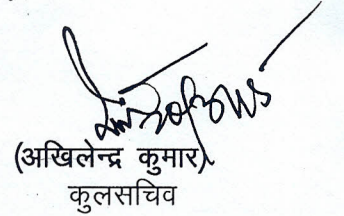 (अखिलेन्द्र कुमार)
कुलसचिव